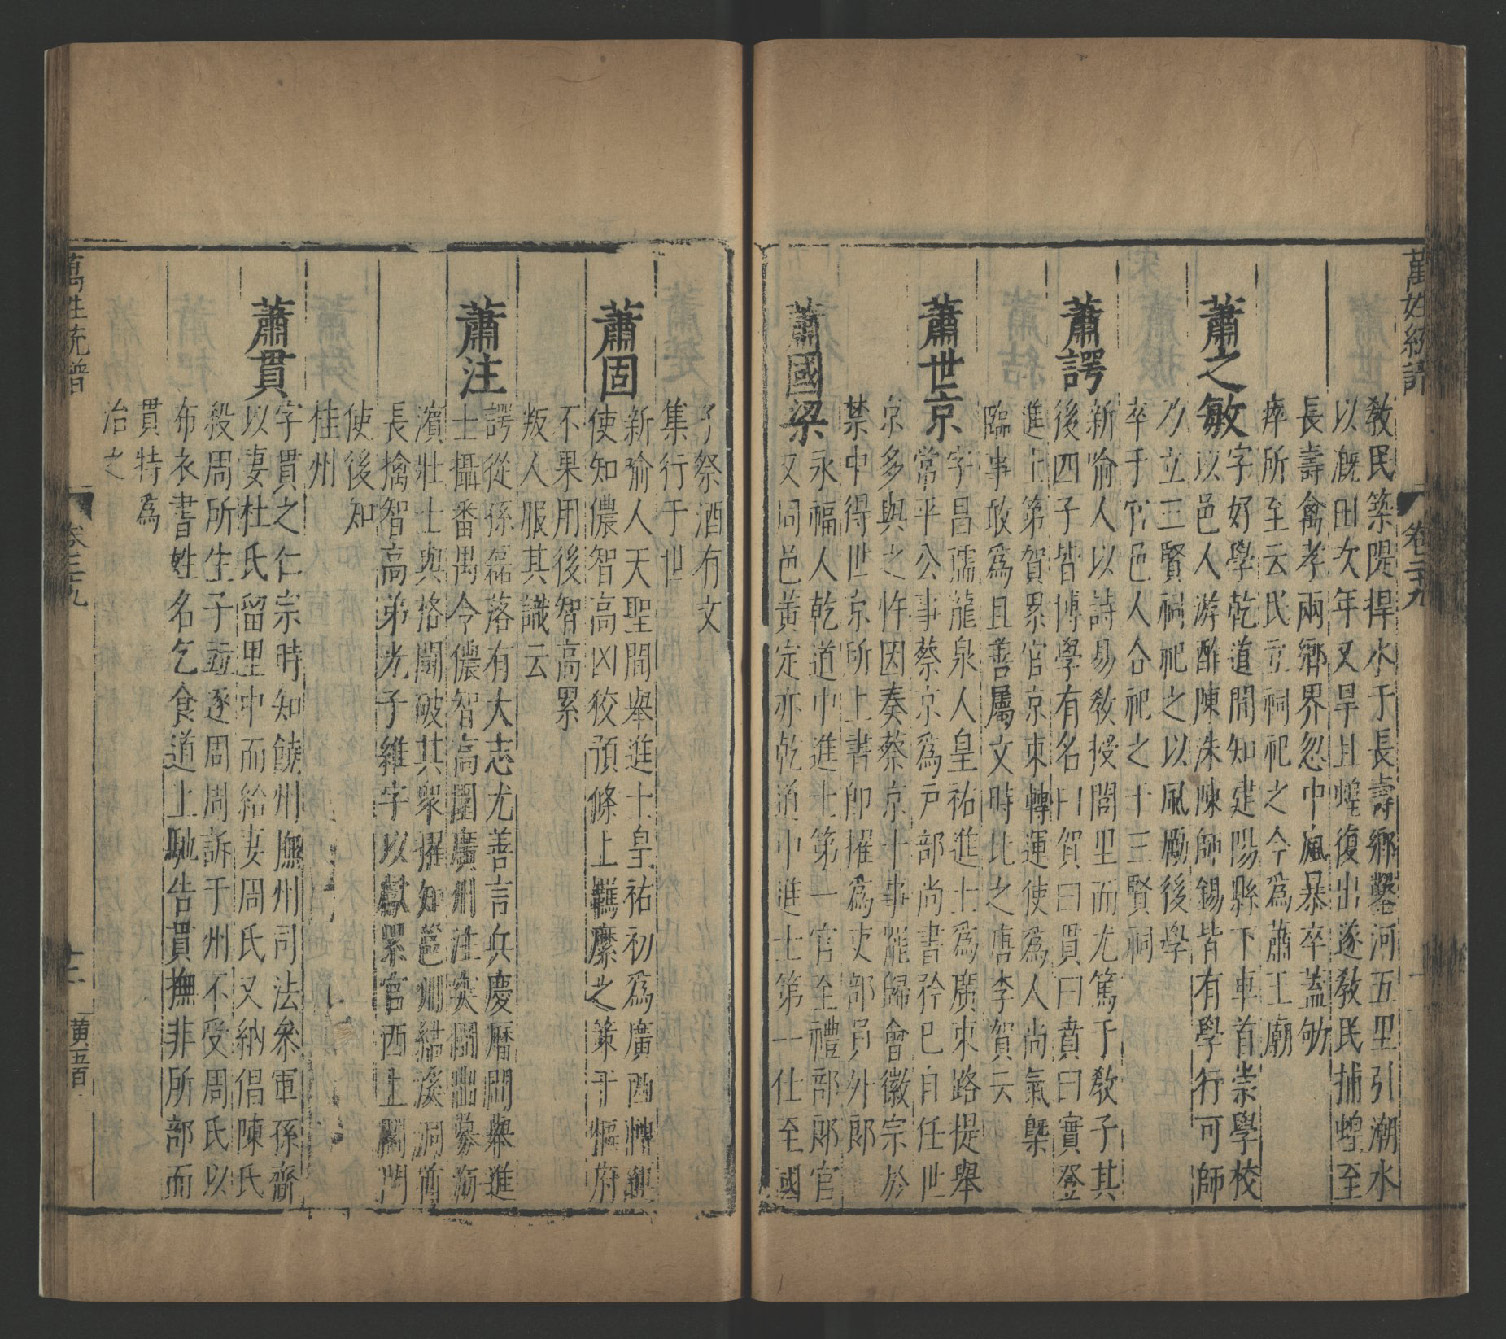 萬姓統譜
卷二十九
教民築隄捍水于長壽鄉鑿河五里引潮水
以溉田次年又旱且蝗復出遂教民捕蝗至
長壽禽孝兩鄉界忽中風暴卒蓋劬
瘁所至云民立祠祀之今為蕭王廟
蕭之敏
字好學乾道間知建陽縣下車首崇學校
以邑人游酢陳洙陳師錫皆有學行可師
乃立三賢祠祀之以風勵後學
卒于官邑人合祀之十三賢祠
蕭諤
新喻人以詩易教授閭里而尤篤于教子其
後四子皆博學有名曰賀曰貫曰賁曰實登
進士第賀累官京東轉運使為人尚氣槩
臨事敢為且善屬文時比之唐李賀云
蕭世京
字昌孺龍泉人皇祐進士為廣東路提舉
常平公事蔡京為戶部尚書矜已自任世
京多與之忤因奏蔡京十事罷歸會徽宗於
禁中得世京所上書即擢為吏部員外郎
蕭國梁
永福人乾道中進士第一官至禮部郎官
又同邑黃定亦乾道中進士第一仕至國
子祭酒有文
集行于世
蕭固
新喻人天聖間舉進士皇祐初為廣西轉運
使知儂智高凶狡預條上羈縻之策于樞府
不果用後智高累
叛人服其識云
蕭注
諤從孫磊落有大志尤善言兵慶曆間舉進
士攝番禺令儂智高圍廣州注突圍出募海
濱壯士與格鬭破其衆擢知邕州結溪洞酋
長擒智高弟光子繼字以獻累官西上閤門
使後知
桂州
蕭貫
字貫之仁宗時知饒州撫州司法叅軍孫齋
以妻杜氏留里中而給妻周氏又納倡陳氏
段周所生子逐周周訴于州不受周氏以
布衣書姓名乞食道上馳告貫撫非所部而
貫特為
治之
萬姓統譜
卷二十九
十二
黃五百